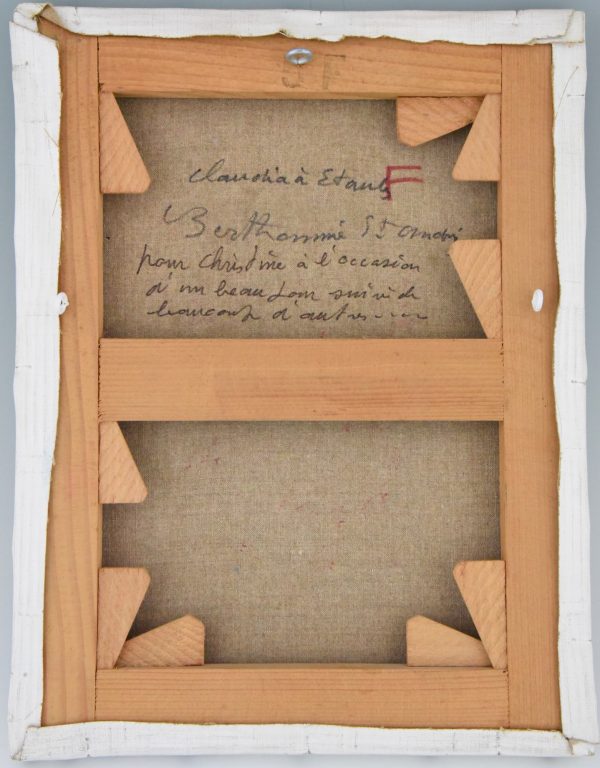 5F
Claudia à Etaules
F
Berthommé St André
pour Christine à l'occasion
d'un beau jour suivi de
beaucoup d'autres ----